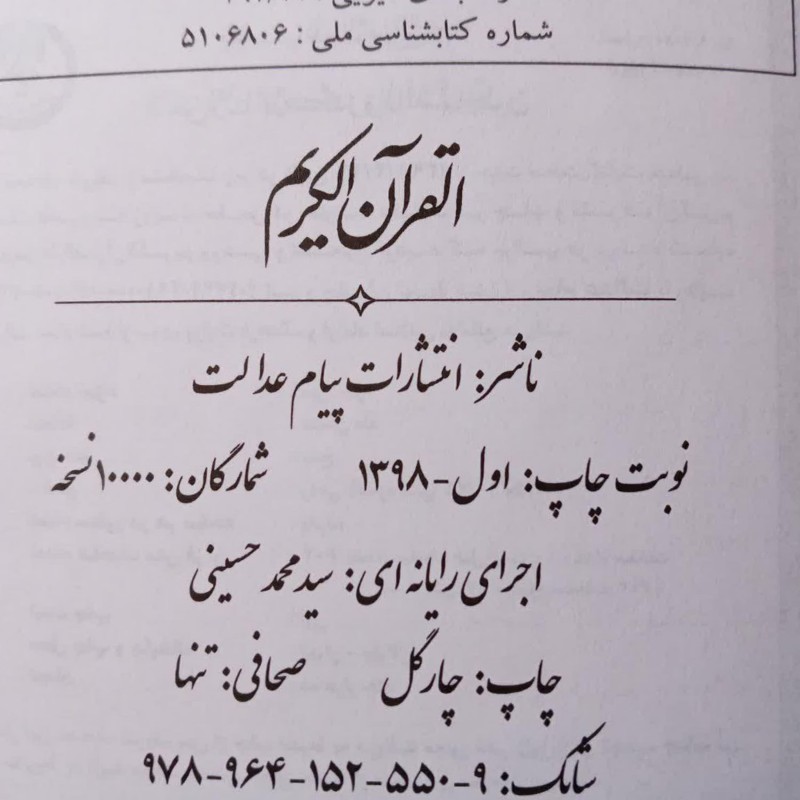 شماره کتابشناسی ملی : ۵۱۰۶۸۰۶
القرآن الکریم
ناشر: انتشارات پیام عدالت
نوبت چاپ: اول-۱۳۹۸ شمارگان: ۱۰۰۰۰نسخه
اجرای رایانه ای: سید محمد حسینی
چاپ: چارگل صحافی: تنها
شابک: ۹-۵۵۰-۱۵۲-۹۶۴-۹۷۸